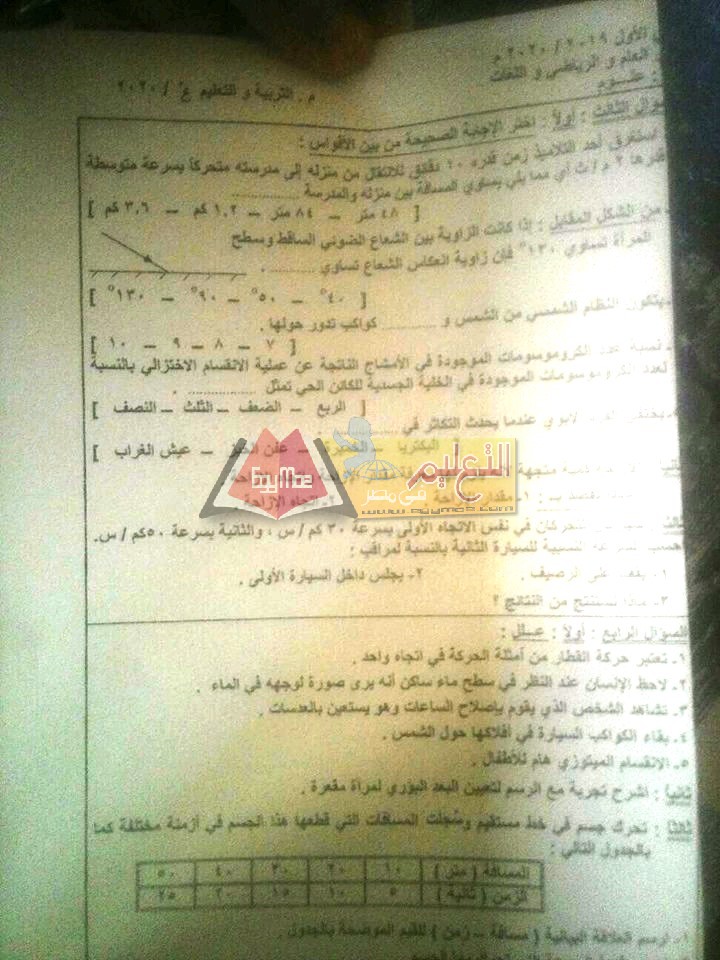 الأول ٢٠١٩ / ٢٠٢٠ م
العام و الرياضي و اللغات
: علوم
م . التربية و التعليم ع / ٢٠٢٠
السؤال الثالث : أولاً : اختر الإجابة الصحيحة من بين الأقواس :
استغرق أحد التلاميذ زمن قدره ١٠ دقائق للانتقال من منزله إلى مدرسته متحركاً بسرعة متوسطة
قدرها ٢ م / ث أي مما يلي يساوي المسافة بين منزله والمدرسة ............
[ ٤٨ متر – ٨٤ متر – ١,٢ كم – ٣,٦ كم ]
من الشكل المقابل : إذا كانت الزاوية بين الشعاع الضوئي الساقط وسطح
المرآة تساوي ١٣٠° فإن زاوية انعكاس الشعاع تساوي ............ .
[ ٤٠° – ٥٠° – ٩٠° – ١٣٠° ]
يتكون النظام الشمسي من الشمس و ............ كواكب تدور حولها .
[ ٧ – ٨ – ٩ – ١٠ ]
نسبة عدد الكروموسومات الموجودة في الأمشاج الناتجة عن عملية الانقسام الاختزالي بالنسبة
لعدد الكروموسومات الموجودة في الخلية الجسدية للكائن الحي تمثل ............ .
[ الربع – الضعف – الثلث – النصف ]
عندما يحدث التكاثر في ............ .
[ البكتريا – الخميرة – عفن الخبز – عيش الغراب ]
التعليم
في مصر
EgyMoe
www.egymoe.com
١- مقدار الإزاحة
٢- اتجاه الإزاحة .
في نفس الاتجاه الأولى بسرعة ٣٠ كم / س ، والثانية بسرعة ٥٠ كم / س.
احسب السرعة النسبية للسيارة الثانية بالنسبة لمراقب :
١- يقف على الرصيف .
٢- يجلس داخل السيارة الأولى .
٣- ماذا تستنتج من النتائج ؟
السؤال الرابع : أولاً : علل :
١- تعتبر حركة القطار من أمثلة الحركة في اتجاه واحد .
٢- لاحظ الإنسان عند النظر في سطح ماء ساكن أنه يرى صورة لوجهه في الماء .
٣- تشاهد الشخص الذي يقوم بإصلاح الساعات وهو يستعين بالعدسات .
٤- بقاء الكواكب السيارة في أفلاكها حول الشمس .
٥- الانقسام الميتوزي هام للأطفال .
ثانياً : اشرح تجربة مع الرسم لتعيين البعد البؤري لمرآة مقعرة .
ثالثاً : تحرك جسم في خط مستقيم وسُجلت المسافات التي قطعها هذا الجسم في أزمنة مختلفة كما
بالجدول التالي :
المسافة ( متر ) ١٠ ٢٠ ٣٠ ٤٠ ٥٠
الزمن ( ثانية ) ٥ ١٠ ١٥ ٢٠ ٢٥
١- ارسم العلاقة البيانية ( مسافة – زمن ) للقيم الموضحة بالجدول .